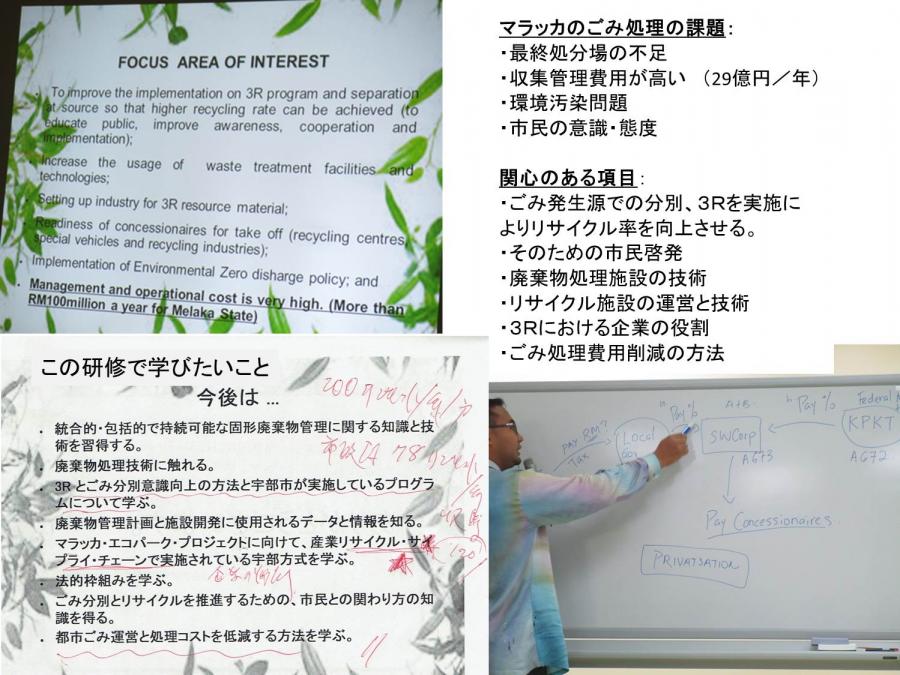 FOCUS AREA OF INTEREST
To improve the implementation on 3R program and separation
at source so that higher recycling rate can be achieved (to
educate public, improve awareness, cooperation and
implementation);
Increase the usage of waste treatment facilities and
technologies;
Setting up industry for 3R resource material;
Readiness of concessionaires for take off (recycling centres,
special vehicles and recycling industries);
Implementation of Environmental Zero disharge policy; and
Management and operational cost is very high. (More than
RM100million a year for Melaka State)
マラッカのごみ処理の課題:
・最終処分場の不足
・収集管理費用が高い (29億円/年)
・環境汚染問題
・市民の意識・態度
関心のある項目:
・ごみ発生源での分別、3Rを実施に
よりリサイクル率を向上させる。
・そのための市民啓発
・廃棄物処理施設の技術
・リサイクル施設の運営と技術
・3Rにおける企業の役割
・ごみ処理費用削減の方法
この研修で学びたいこと
今後は ...
・統合的・包括的で持続可能な固形廃棄物管理に関する知識と技
術を習得する。
・廃棄物処理技術に触れる。
・3Rとごみ分別意識向上の方法と宇部市が実施しているプログラ
ムについて学ぶ。
・廃棄物管理計画と施設開発に使用されるデータと情報を知る。
・マラッカ・エコパーク・プロジェクトに向けて、産業リサイクル・サ
プライ・チェーンで実施されている宇部方式を学ぶ。
・法的枠組みを学ぶ。
・ごみ分別とリサイクルを推進するための、市民との関わり方の知
識を得る。
・都市ごみ運営と処理コストを低減する方法を学ぶ。
PAY RM?
Tax
Local
Gov
Pay %
A+B
SWCorp
A673
Pay %
Federal
KPKT
A672
Pay Concessionaires
PRIVATSATION